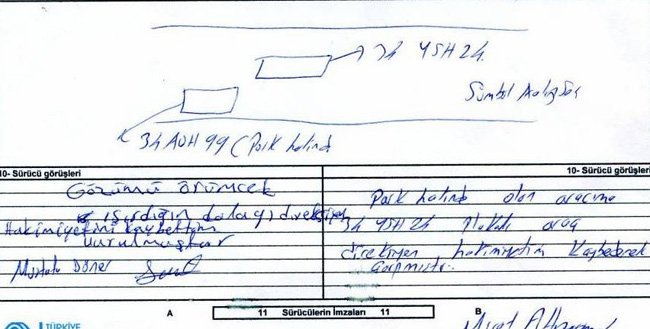 34 YSH 24
34 AUH 99 (Park halinde
10- Sürücü görüşleri
Gözümü örümcek
ısırdığın dolayı direksiyon
Hakimiyetini kaybettim
vurulmuştur
Döner
10- Sürücü görüşleri
Park halinde olan aracıma
34 YSH 24 Plakalı araç
direksiyon hakimiyetini Kaybederek
A
11 Sürücülerin İmzaları 11
B
TÜRKİYE